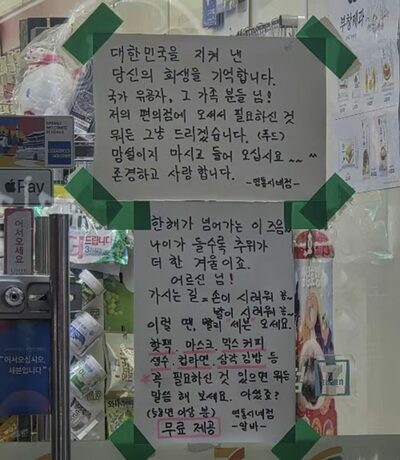 대한민국을 지켜 낸
당신의 희생을 기억합니다.
국가 유공자, 그 가족 분들 님!
저의 편의점에 오셔서 필요하신 것
뭐든 그냥 드리겠습니다. (푸드)
망설이지 마시고 들어 오십시요 ~~ ^^
존경하고 사랑합니다.
-명동시네점-
한해가 넘어가는 이 즈음
나이가 들수록 추위가
더 한 겨울이죠.
어르신 님!
가시는 길 = 손이 시려워 꽁~
발이 시려워 꽁~
이럴 땐, 빨리 세븐 오세요.
핫팩. 마스크. 믹스커피
생수. 컵라면. 삼각김밥 등
꼭 필요하신 것 있으면 뭐든
말씀 해 보세요. 아셨죠?
명동시네점
-알바-
무료 제공
Pay
어서오세요
드립니다
"어서오십시오,
세븐입니다"